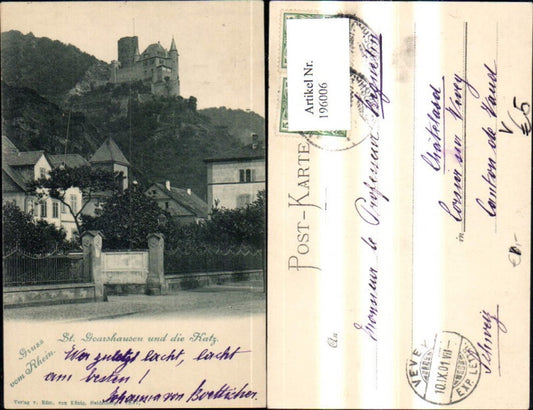 St. Goarshausen und die Katz.
Gruss
vom Rhein.
Wer zuletzt lacht, lacht
am besten!
Johanna von Boetticher.
Verlag v. Edm. von König,
POST-KARTE
An
Monsieur le Professeur
in
Châtelard
Corsier sur Vevey
Canton de Vaud
Schweiz
Artikel Nr.
196006
VEVEY
10.IX.01 VII
EXP. LETT.